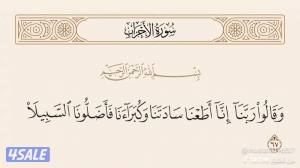 سُورَةُ الأَحْزَابِ
بِسْمِ اللَّهِ الرَّحْمَٰنِ الرَّحِيمِ
وَقَالُوا۟ رَبَّنَآ إِنَّآ أَطَعْنَا سَادَتَنَا وَكُبَرَآءَنَا فَأَضَلُّونَا ٱلسَّبِيلَا۠ ٦٧
4SALE